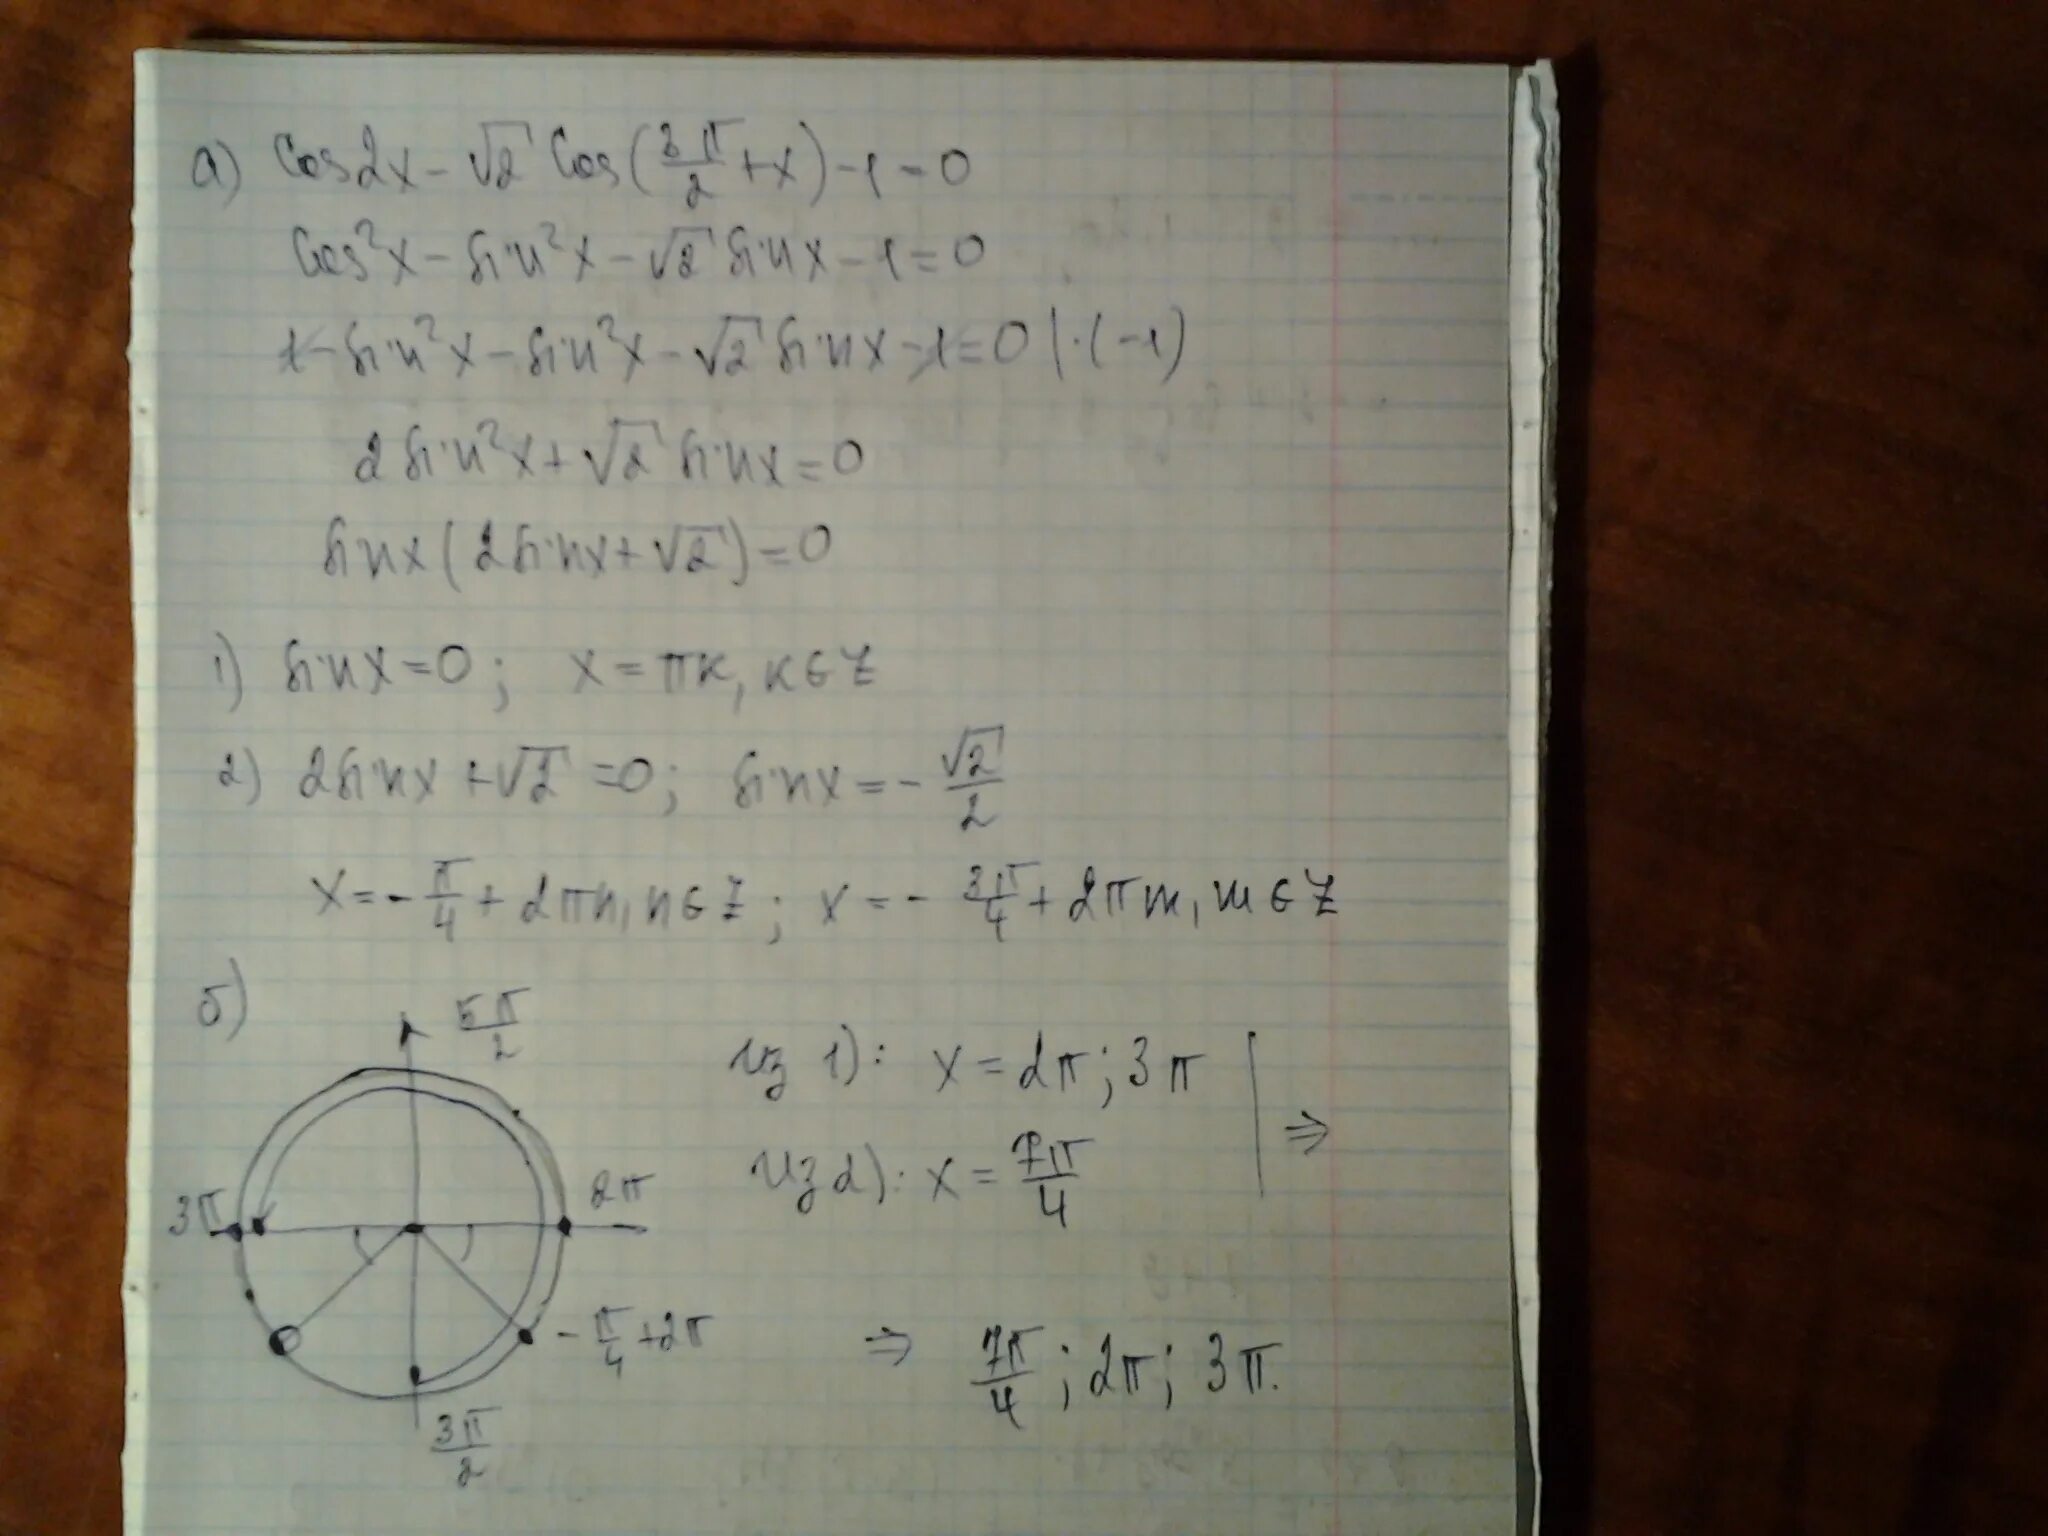 а) Cos2x - √2 Cos(3π/2 + x) - 1 = 0
Cos²x - sin²x - √2 sinx - 1 = 0
1 - sin²x - sin²x - √2 sinx - 1 = 0 | · (-1)
2 sin²x + √2 sinx = 0
sinx (2 sinx + √2) = 0
1) sinx = 0; x = πk, k ∈ Z
2) 2 sinx + √2 = 0; sinx = - √2/2
x = - π/4 + 2πn, n ∈ Z; x = - 3π/4 + 2πm, m ∈ Z
б)
5π/2
Из 1): x = 2π; 3π
⇒
Из 2): x = 7π/4
3π
2π
- π/4 + 2π
⇒ 7π/4; 2π; 3π.
3π/2